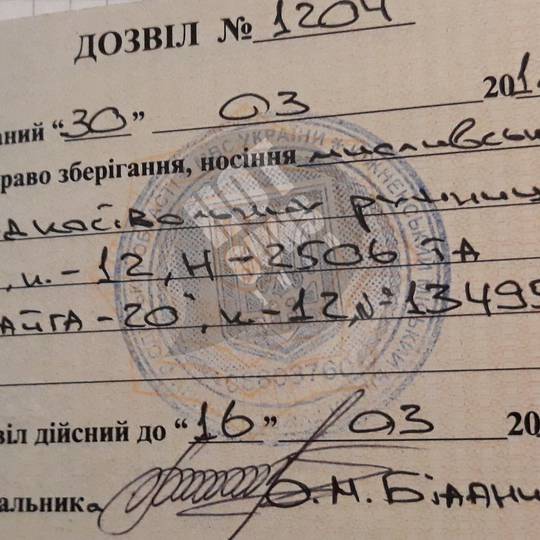 ДОЗВІЛ № 1204
аний “30” 03 201
раво зберігання, носіння мисливсь
дкоствольних рушниц
, к.-12, Н-2506 ТА
АЙГА-20", к.-12, № 13495
віл дійсний до “16” 03 20
альника О.М. Бідани